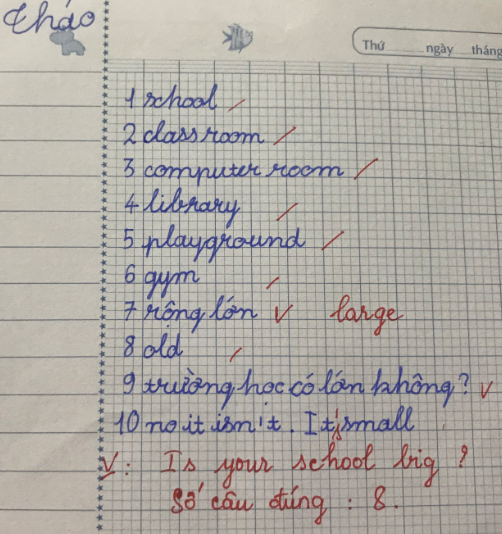 Thảo
Thứ ngày tháng
1 school
2 classroom
3 computer room
4 library
5 playground
6 gym
7 rộng lớn V large
8 old
9 trường học có lớn không? V
10 no it isn't. It's small
V: Is your school big ?
Số câu đúng : 8.